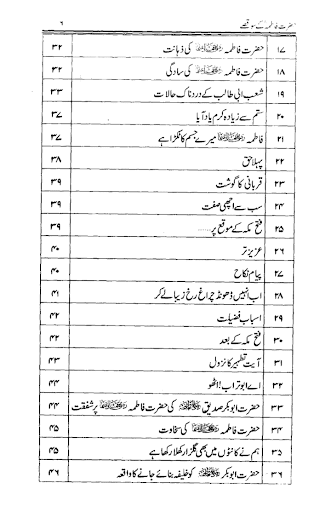 حضرت فاطمہؓ کے سو قصے ۶
۱۷ حضرت فاطمہ رضی اللہ عنہا کی ذہانت ۳۲
۱۸ حضرت فاطمہ رضی اللہ عنہا کی سادگی ۳۲
۱۹ شعب ابی طالب کے دردناک حالات ۳۳
۲۰ ستم سے زیادہ کرم یاد آیا ۳۷
۲۱ فاطمہ رضی اللہ عنہا میرے جسم کا ٹکڑا ہے ۳۷
۲۲ پہلا حق ۳۸
۲۳ قربانی کا گوشت ۳۹
۲۴ سب سے اچھی صفت ۳۹
۲۵ فتح مکہ کے موقع پر..... ۳۹
۲۶ عزیز تر ۴۰
۲۷ پیام نکاح ۴۰
۲۸ اب انہیں ڈھونڈ چراغ رخ زیبا لے کر ۴۱
۲۹ اسباب فضیلت ۴۲
۳۰ فتح مکہ کے بعد ۴۲
۳۱ آیت تطہیر کا نزول ۴۳
۳۲ اے ابو تراب! اٹھو ۴۴
۳۳ حضرت ابوبکر صدیق رضی اللہ عنہ کی حضرت فاطمہ رضی اللہ عنہا پر شفقت ۴۴
۳۴ حضرت فاطمہ رضی اللہ عنہا کی سخاوت ۴۵
۳۵ ہم نے کانٹوں میں بھی گلزار کھلا رکھا ہے ۴۵
۳۶ حضرت ابوبکر رضی اللہ عنہ کو خلیفہ بنائے جانے کا واقعہ ۴۶